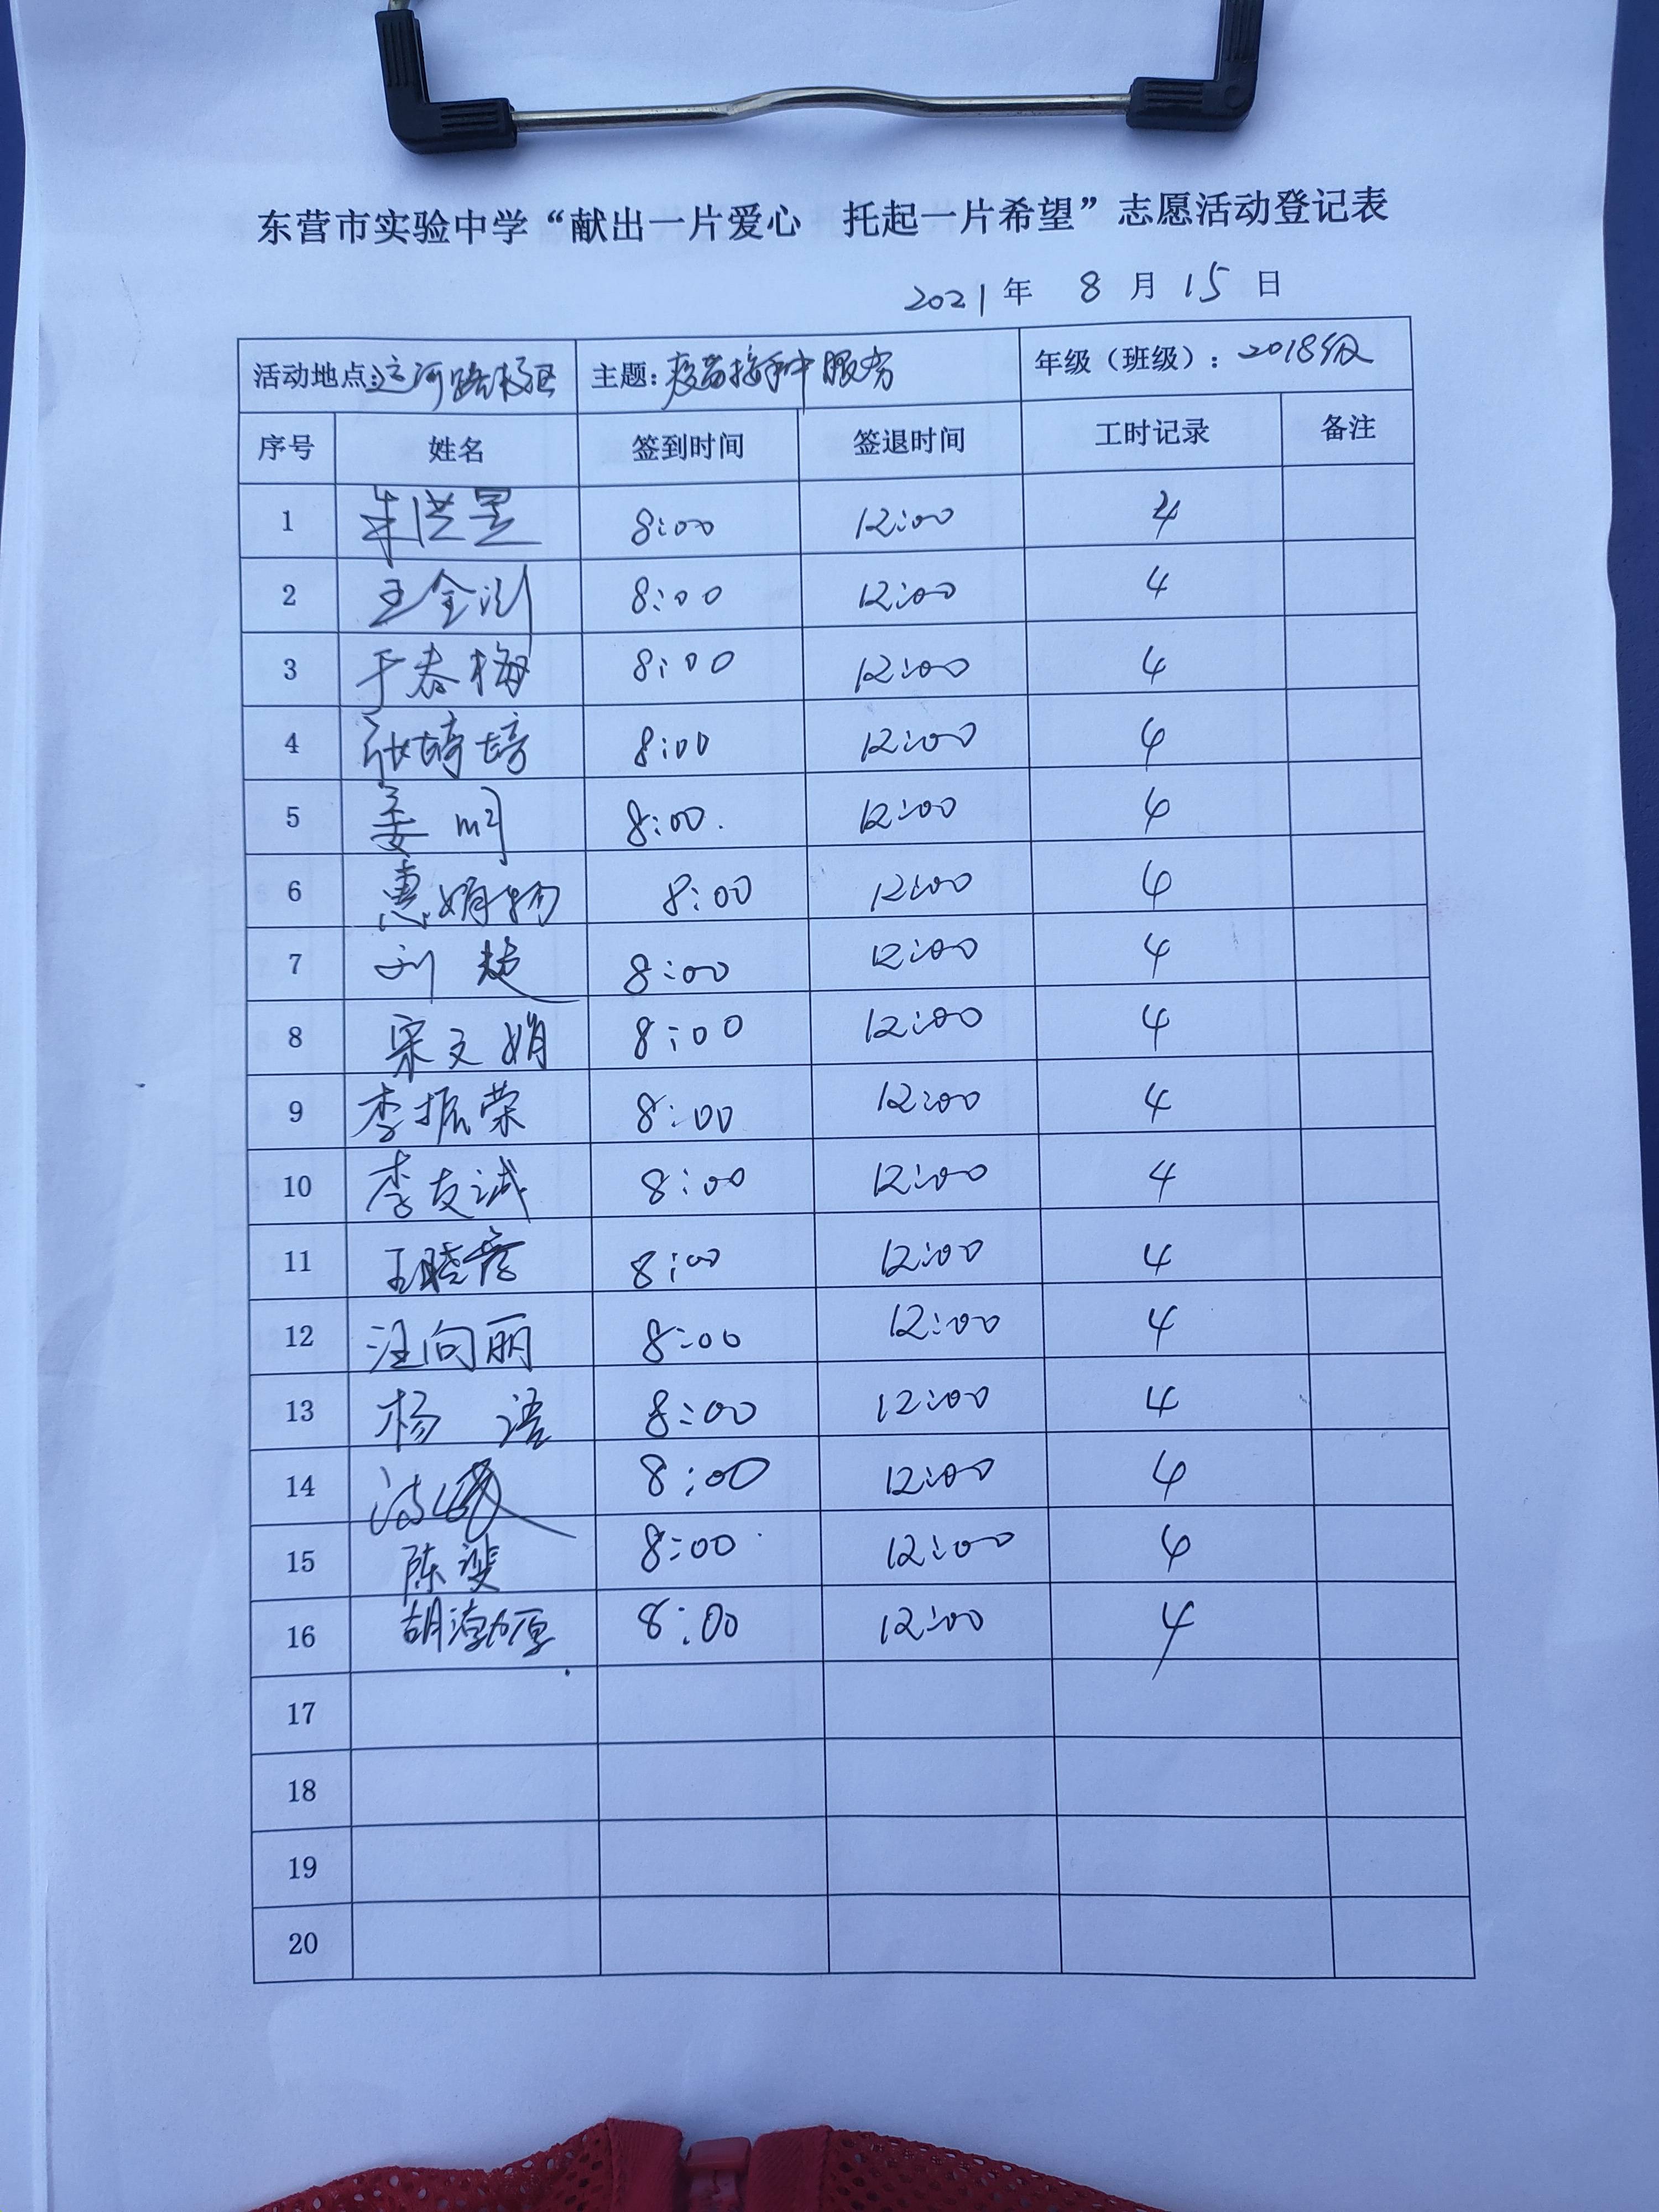 东营市实验中学“献出一片爱心 托起一片希望”志愿活动登记表
2021年 8月15日
活动地点:运河路校区 主题:疫苗接种服务 年级(班级):2018级
序号 姓名 签到时间 签退时间 工时记录 备注
1 朱洪昱 8:00 12:00 4
2 王金 8:00 12:00 4
3 于春梅 8:00 12:00 4
4 张琦 8:00 12:00 4
5 姜明 8:00 12:00 4
6 惠娟 8:00 12:00 4
7 刘超 8:00 12:00 4
8 宋文娟 8:00 12:00 4
9 李振荣 8:00 12:00 4
10 李友诚 8:00 12:00 4
11 王晓彦 8:00 12:00 4
12 汪向丽 8:00 12:00 4
13 杨语 8:00 12:00 4
14 8:00 12:00 4
15 陈斐 8:00 12:00 4
16 胡渤厚 8:00 12:00 4
17
18
19
20